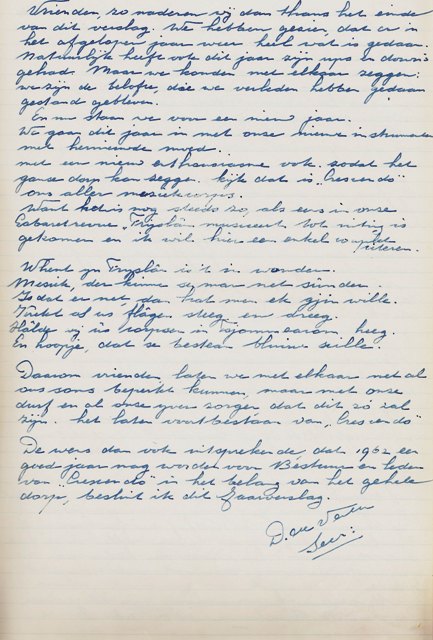 Vrienden, zo naderen wij dan thans het einde
van dit verslag. We hebben gezien, dat er in
het afgelopen jaar weer heel wat is gedaan.
Natuurlijk heeft ook dit jaar zijn ups en down's
gehad. Maar we konden met elkaar zeggen:
we zijn de belofte, die we verleden hebben gedaan
gestand gebleven.
En nu staan we voor een nieuw jaar.
We gaan dit jaar in met onze nieuwe instrumenten
met hernieuwde moed.
met een nieuw enthousiasme ook. zodat het
ganse dorp kan zeggen. kijk dat is "Crescendo"
ons aller muziekcorps.
Want het is nog steeds zo, als eens in onze
Cabaretrevue "Fryslân musiceert" tot uiting is
gekomen en ik wil hier een enkel couplet
citeren.
Whent yn Fryslân is 't in wonder.
Mesyk, der kinne sy mar net sûnder.
Is dat er net, dan hat men ek gjin wille.
Trekt al us flagen steeg en dreeg.
Hâlde wy us corpsen in heeg.
En hoopje, dat se bestean bliuwe sille.
Daarom vrienden laten we met elkaar met al
ons soms beperkt kunnen, maar met onze
durf en al onze ijver zorgen dat dit zó zal
zijn. het laten voortbestaan van "Crescendo"
De wens dan ook uitsprekende, dat 1962 een
goed jaar mag worden voor Bestuur en leden
van "Crescendo" in het belang van het gehele
dorp, besluit ik dit Jaarverslag.
D. v.d. Veen
Secr: